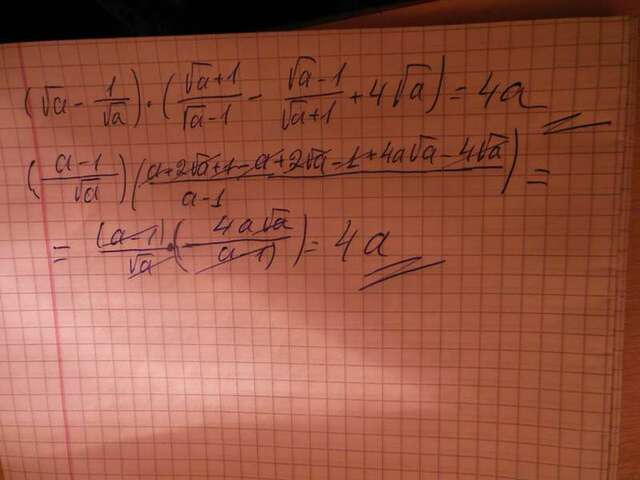 (√a - 1/√a) · ( (√a+1)/(√a-1) - (√a-1)/(√a+1) + 4√a ) = 4a
( (a-1)/√a ) ( (a+2√a+1-a+2√a-1+4a√a-4√a)/(a-1) ) =
= (a-1)/√a · ( 4a√a/(a-1) ) = 4a